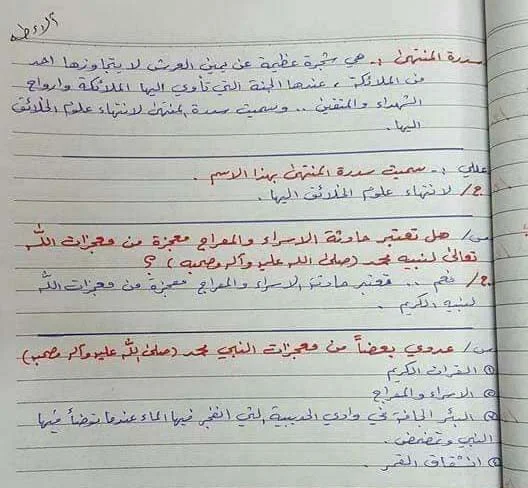 سدرة المنتهى :- هي شجرة عظيمة عن يمين العرش لا يتجاوزها احد
من الملائكة ، عندها الجنة التي تأوي اليها الملائكة وارواح
الشهداء والمتقين .. وسميت سدرة المنتهى لانتهاء علوم الخلائق
اليها .
عللي :- سميت سدرة المنتهى بهذا الاسم .
ج/ لانتهاء علوم الخلائق اليها .
س/ هل تعتبر حادثة الاسراء والمعراج معجزة من معجزات الله
تعالى لنبيه محمد (صلى الله عليه وآله وصحبه) ؟
ج/ نعم .. تعتبر حادثة الاسراء والمعراج معجزة من معجزات الله
لنبيه الكريم .
س/ عددي بعضاً من معجزات النبي محمد (صلى الله عليه وآله وصحبه)
القران الكريم
الاسراء والمعراج
البئر الجافة في وادي الحديبية التي انفجر فيها الماء عندما توضأ فيها
النبي وتمضمض .
انشقاق القمر .